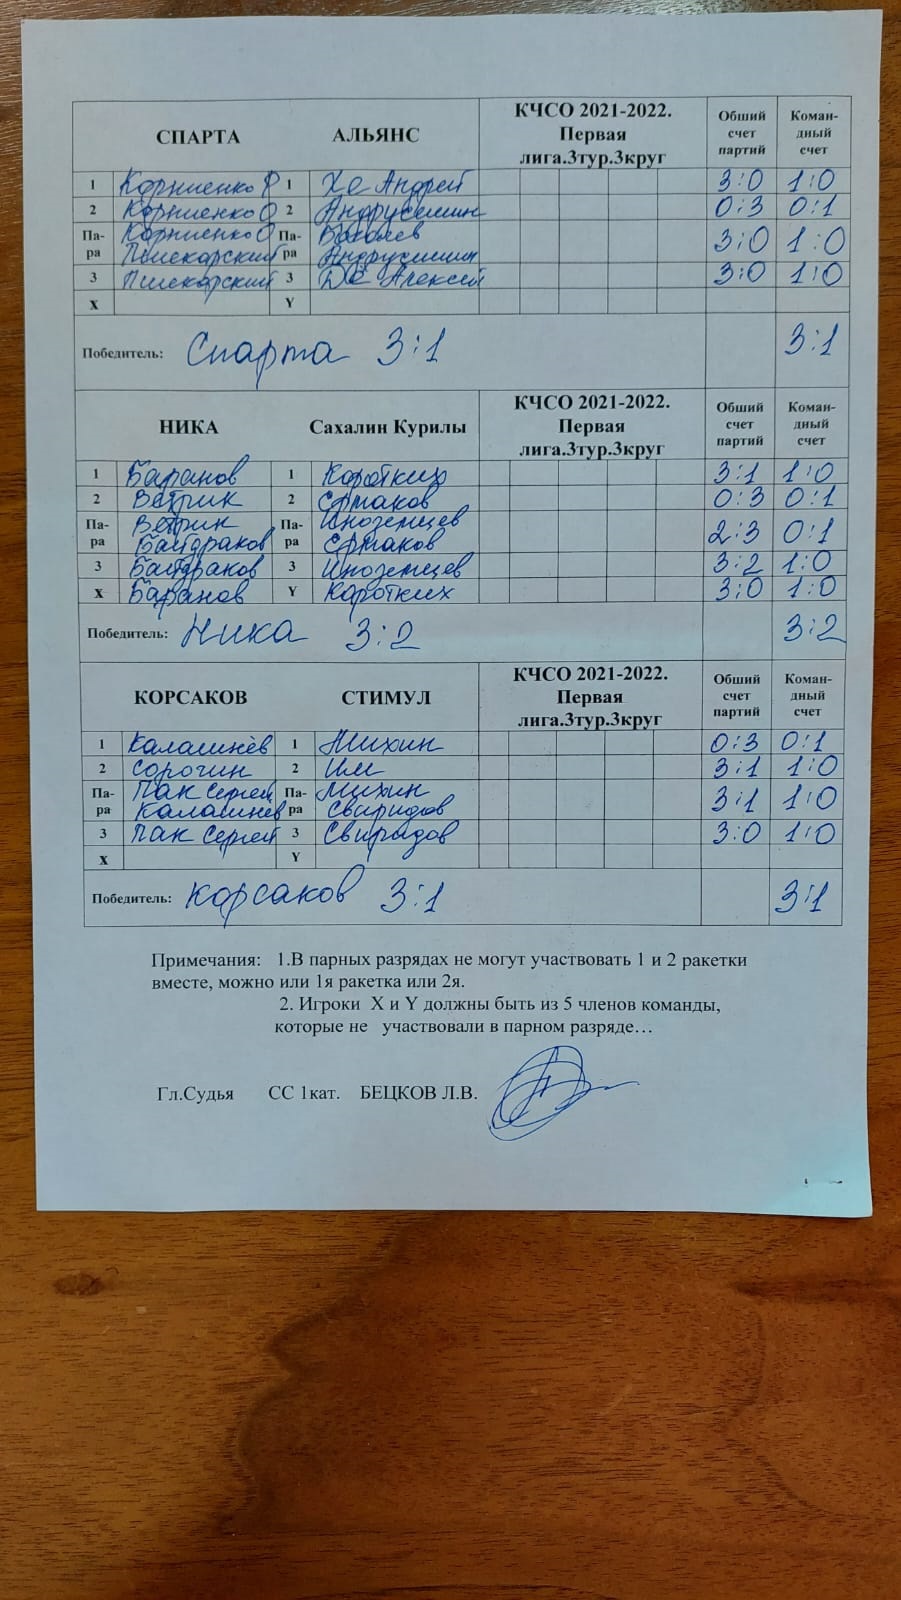 СПАРТА АЛЬЯНС КЧСО 2021-2022. Первая лига.3тур.3круг Обший счет партий Коман-дный счет
1 Корниенко Р 1 Хе Андрей 3:0 1:0
2 Корниенко О 2 Андрусишин 0:3 0:1
Па-ра Корниенко О Па-ра 3:0 1:0
Пшекорский Андрусишин
3 Пшекорский 3 Де Алексей 3:0 1:0
X Y
Победитель: Спарта 3:1 3:1
НИКА Сахалин Курилы КЧСО 2021-2022. Первая лига.3тур.3круг Обший счет партий Коман-дный счет
1 Баранов 1 Коротких 3:1 1:0
2 Ветрик 2 Ермаков 0:3 0:1
Па-ра Ветрик Па-ра Иноземцев 2:3 0:1
Байдраков Ермаков
3 Байдраков 3 Иноземцев 3:2 1:0
X Баранов Y Коротких 3:0 1:0
Победитель: Ника 3:2 3:2
КОРСАКОВ СТИМУЛ КЧСО 2021-2022. Первая лига.3тур.3круг Обший счет партий Коман-дный счет
1 Калашнёв 1 Михин 0:3 0:1
2 Сорочин 2 Им 3:1 1:0
Па-ра Пак Сергей Па-ра Михин 3:1 1:0
Калашнёв Свиридов
3 Пак Сергей 3 Свиридов 3:0 1:0
X Y
Победитель: Корсаков 3:1 3:1
Примечания: 1.В парных разрядах не могут участвовать 1 и 2 ракетки
вместе, можно или 1я ракетка или 2я.
2. Игроки X и Y должны быть из 5 членов команды,
которые не участвовали в парном разряде…
Гл.Судья СС 1кат. БЕЦКОВ Л.В.